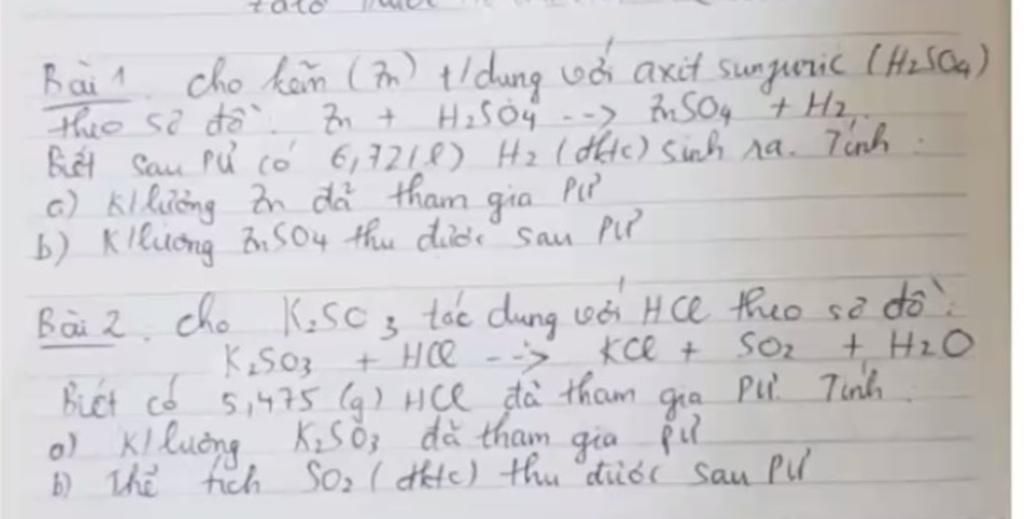 Bài 1. Cho kẽm (Zn) t/dung với axit sunfuric (H2SO4)
theo sơ đồ: Zn + H2SO4 --> ZnSO4 + H2.
Biết sau PƯ có 6,72(l) H2 (đktc) sinh ra. Tính:
a) K/lượng Zn đã tham gia PƯ
b) K/lượng ZnSO4 thu được sau PƯ
Bài 2. Cho K2SO3 tác dụng với HCl theo sơ đồ:
K2SO3 + HCl --> KCl + SO2 + H2O
Biết có 5,475 (g) HCl đã tham gia PƯ. Tính:
a) K/lượng K2SO3 đã tham gia PƯ
b) Thể tích SO2 (đktc) thu được sau PƯ